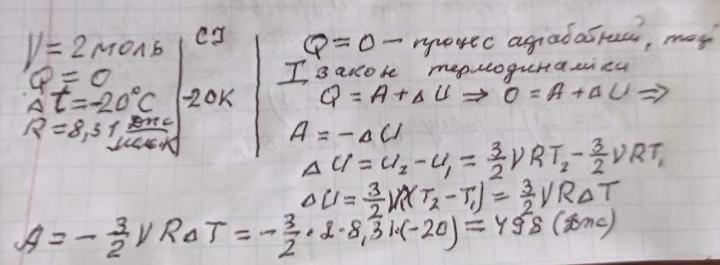 ν = 2 моль
Q = 0
Δt = -20°C
R = 8,31 Дж/моль·К
СІ
-20К
Q = 0 – процес адіабатний, тоді
I закон термодинаміки
Q = A + ΔU ⇒ 0 = A + ΔU ⇒
A = -ΔU
ΔU = U₂ - U₁ = 3/2 νRT₂ - 3/2 νRT₁
ΔU = 3/2 νR(T₂ - T₁) = 3/2 νRΔT
A = - 3/2 νRΔT = - 3/2 · 2 · 8,31·(-20) = 498 (Дж)